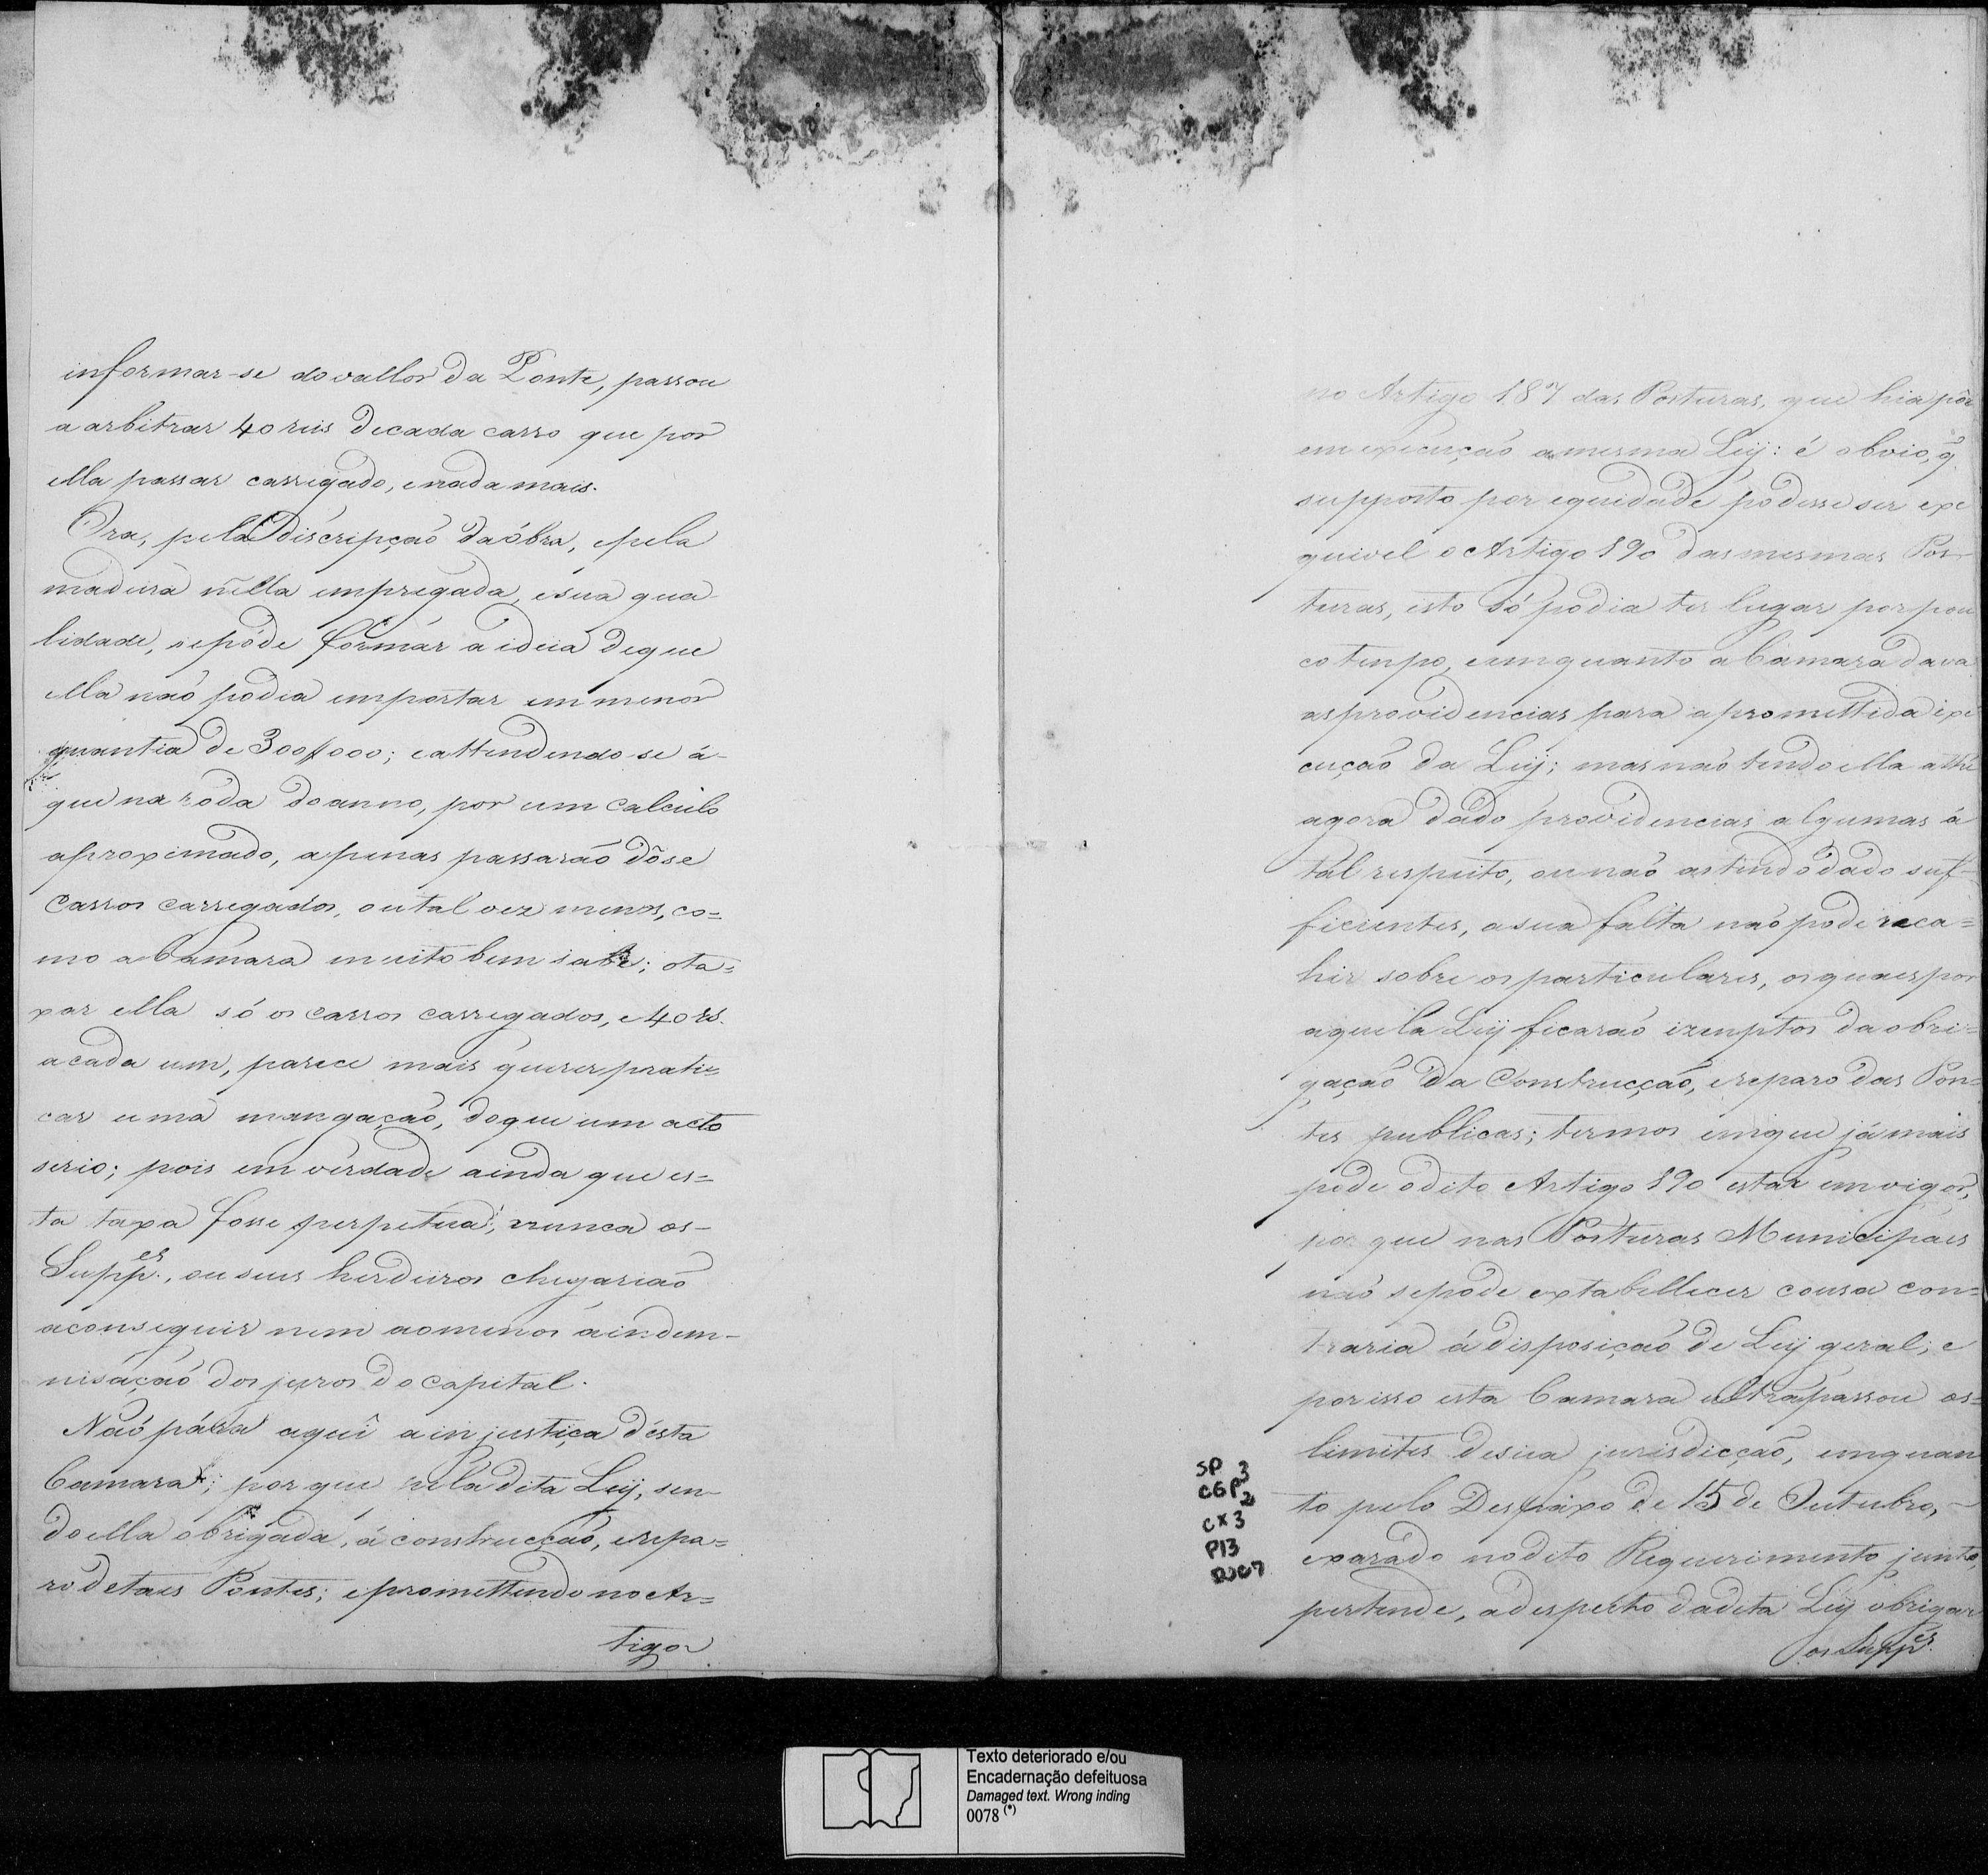 informar-se do vallor da Ponte, passou
a arbitrar 40 reis de cada carro que por
ella passar carregado, e nada mais.
Ora, pela discripção da óbra, e pela
madeira n'ella empregada, e sua qua-
lidade, se póde formár a ideia de que
ella não podia importar em menor
quantia de 300$000; e attendendo se á-
que na roda do anno, por um calculo
aproximado, apenas passarão dôse
Carros carregados, ou tal vez menos, co=
mo a Camara muito bem sabe; o ta=
xar ella só os carros carregados, e 40 rs.
a cada um, parece mais querer prati=
car uma mangação, do que um acto
serio; pois em verdade ainda que es=
ta taxa fosse perpetua, nunca os-
Supp.es, ou seus herdeiros chegarião
a conseguir nem ao menos a indem-
nisação dos juros do capital.
Não pára aquî a injustiça désta
Camara; por que pela dita Ley, sen-
do ella obrigada, á construcção, e repa=
ro de taes Pontes; e promettendo no Ar=
tigo
no Artigo 187 das Posturas, que hia pôr
em execução a mesma Ley: é obvio, q̃
supposto por equidade podesse ser exe
quivel o Artigo 190 das mesmas Pos-
turas, isto só podia ter lugar por pou
co tempo, em quanto a Camara dava
as providencias para a promettida exe
cução da Ley; mas não tendo ella athé
agora dado providencias algumas á
tal respeito, ou não as tendo dado suf-
ficientes, a sua falta não pode reca=
hir sobre os particulares, os quaes por
aquela Ley ficarão izemptos da obri=
gação da Construcção, e reparo das Pon=
tes publicas; termos em que já mais
pode o dito Artigo 190 estar em vigor,
por que nas Posturas Municipaes
não se pode extabellecer cousa con=
traria á disposição de Ley geral; e
por isso esta Camara ultrapassou os=
limites de sua jurisdicção, em quan
to pelo Despaxo de 15 de Outubro, -
exarado no dito Requerimento junto,
pertende, a despecto da dita Ley obrigar
os Supp.es
SP 3
CGP 2
CX 3
P13
D007
Texto deteriorado e/ou
Encadernação defeituosa
Damaged text. Wrong inding
0078 (*)